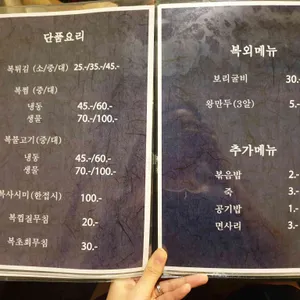 단품요리
복튀김 (소/중/대) 25.-/35.-/45.-
복찜 (중/대)
냉동 45.-/60.-
생물 70.-/100.-
복불고기(중/대)
냉동 45.-/60.-
생물 70.-/100.-
복사시미(한접시) 100.-
복껍질무침 20.-
복초회무침 30.-
복외메뉴
보리굴비 30.-
왕만두(3알) 5.-
추가메뉴
볶음밥 2.-
죽 3.-
공기밥 1.-
면사리 3.-